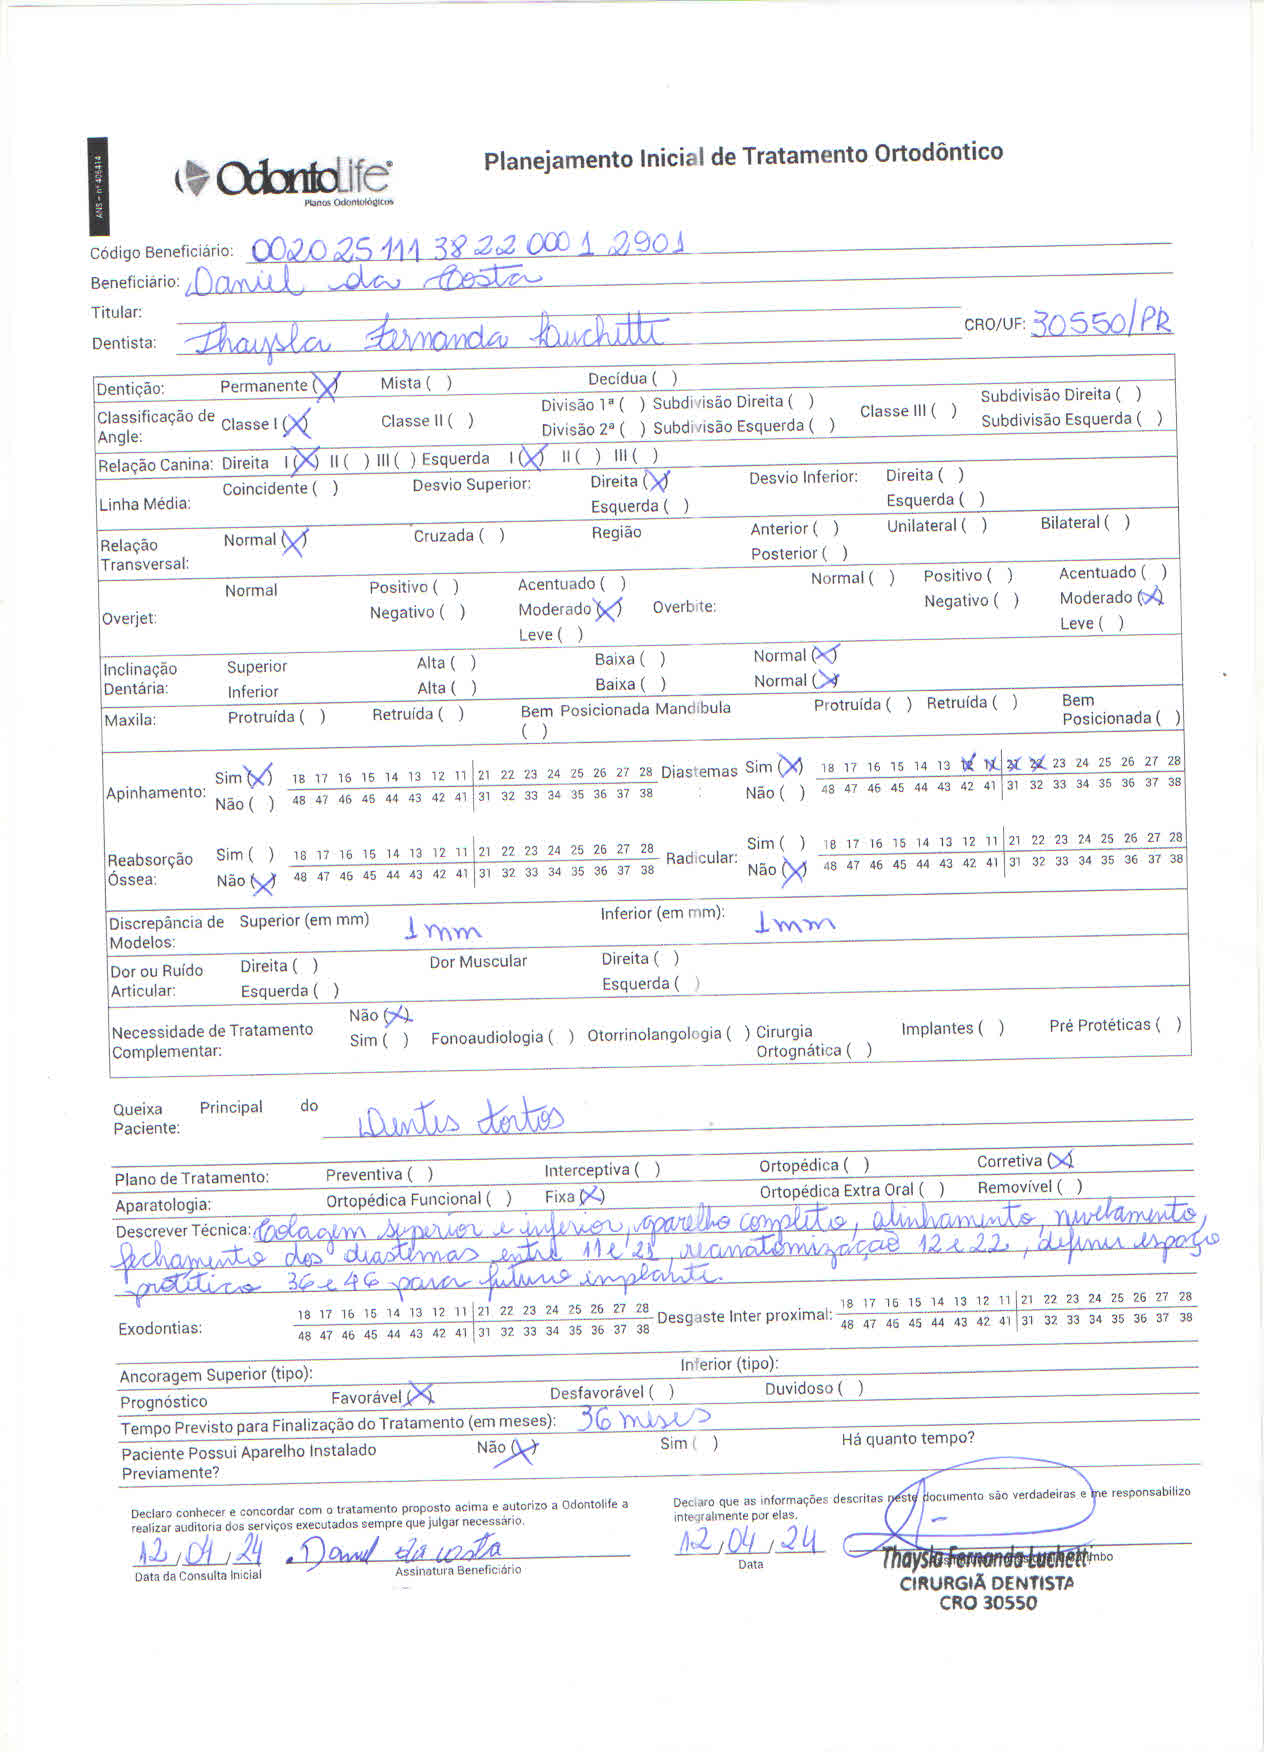 ANS - nº 406414
OdontoLife®
Planos Odontológicos
Planejamento Inicial de Tratamento Ortodôntico
Código Beneficiário: 002025111382200012901
Beneficiário: Daniel da Costa
Titular:
Dentista: Thaysla Fernanda Luchetti CRO/UF: 30550/PR
Dentição: Permanente (X) Mista ( ) Decídua ( )
Classificação de Angle: Classe I (X) Classe II ( ) Divisão 1ª ( ) Subdivisão Direita ( ) Classe III ( ) Subdivisão Direita ( )
Divisão 2ª ( ) Subdivisão Esquerda ( ) Subdivisão Esquerda ( )
Relação Canina: Direita I (X) II ( ) III ( ) Esquerda I (X) II ( ) III ( )
Linha Média: Coincidente ( ) Desvio Superior: Direita (X) Desvio Inferior: Direita ( )
Esquerda ( ) Esquerda ( )
Relação Transversal: Normal (X) Cruzada ( ) Região Anterior ( ) Unilateral ( ) Bilateral ( )
Posterior ( )
Overjet: Normal Positivo ( ) Acentuado ( ) Normal ( ) Positivo ( ) Acentuado ( )
Negativo ( ) Moderado (X) Overbite: Negativo ( ) Moderado (X)
Leve ( ) Leve ( )
Inclinação Dentária: Superior Alta ( ) Baixa ( ) Normal (X)
Inferior Alta ( ) Baixa ( ) Normal (X)
Maxila: Protruída ( ) Retruída ( ) Bem Posicionada Mandíbula ( ) Protruída ( ) Retruída ( ) Bem Posicionada ( )
Apinhamento: Sim (X) 18 17 16 15 14 13 12 11 21 22 23 24 25 26 27 28 Diastemas : Sim (X) 18 17 16 15 14 13 12 11 21 22 23 24 25 26 27 28
Não ( ) 48 47 46 45 44 43 42 41 31 32 33 34 35 36 37 38 Não ( ) 48 47 46 45 44 43 42 41 31 32 33 34 35 36 37 38
Reabsorção Óssea: Sim ( ) 18 17 16 15 14 13 12 11 21 22 23 24 25 26 27 28 Radicular: Sim ( ) 18 17 16 15 14 13 12 11 21 22 23 24 25 26 27 28
Não (X) 48 47 46 45 44 43 42 41 31 32 33 34 35 36 37 38 Não (X) 48 47 46 45 44 43 42 41 31 32 33 34 35 36 37 38
Discrepância de Modelos: Superior (em mm) 1mm Inferior (em mm): 1mm
Dor ou Ruído Articular: Direita ( ) Dor Muscular Direita ( )
Esquerda ( ) Esquerda ( )
Necessidade de Tratamento Complementar: Não (X)
Sim ( ) Fonoaudiologia ( ) Otorrinolangologia ( ) Cirurgia Ortognática ( ) Implantes ( ) Pré Protéticas ( )
Queixa Principal do Paciente: Dentes tortos
Plano de Tratamento: Preventiva ( ) Interceptiva ( ) Ortopédica ( ) Corretiva (X)
Aparatologia: Ortopédica Funcional ( ) Fixa (X) Ortopédica Extra Oral ( ) Removível ( )
Descrever Técnica: Colagem superior e inferior, aparelho completo, alinhamento, nivelamento,
fechamento dos diastemas entre 11 e 21, reanatomização 12 e 22, definir espaço
protético 36 e 46 para futuro implante.
Exodontias: 18 17 16 15 14 13 12 11 21 22 23 24 25 26 27 28 Desgaste Inter proximal: 18 17 16 15 14 13 12 11 21 22 23 24 25 26 27 28
48 47 46 45 44 43 42 41 31 32 33 34 35 36 37 38 48 47 46 45 44 43 42 41 31 32 33 34 35 36 37 38
Ancoragem Superior (tipo): Inferior (tipo):
Prognóstico Favorável (X) Desfavorável ( ) Duvidoso ( )
Tempo Previsto para Finalização do Tratamento (em meses): 36 meses
Paciente Possui Aparelho Instalado Previamente? Não (X) Sim ( ) Há quanto tempo?
Declaro conhecer e concordar com o tratamento proposto acima e autorizo a Odontolife a
realizar auditoria dos serviços executados sempre que julgar necessário.
Declaro que as informações descritas neste documento são verdadeiras e me responsabilizo
integralmente por elas.
12/04/24 Daniel da Costa 12/04/24
Data da Consulta Inicial Assinatura Beneficiário Data
Thaysla Fernanda Luchetti
CIRURGIÃ DENTISTA
CRO 30550